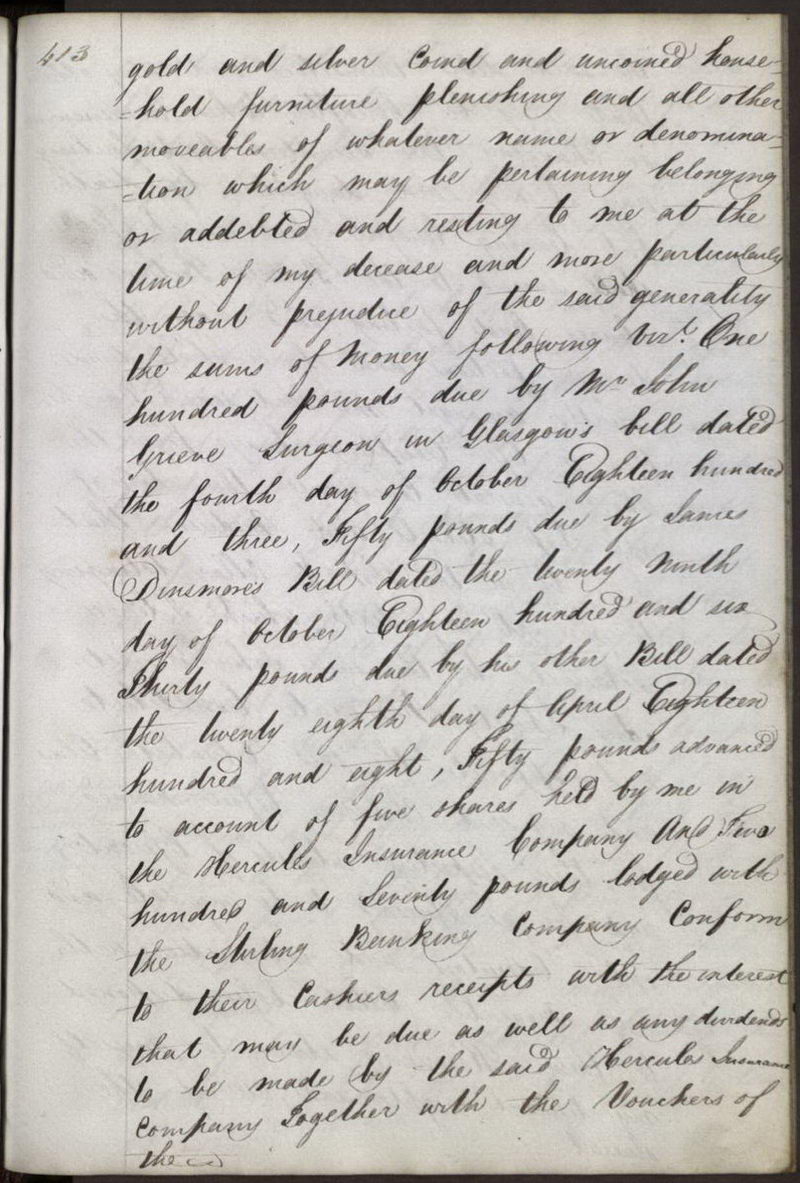 413
gold and silver Coind and uncoined house-
=hold furniture plenishing and all other
moveables of whatever name or denomina=
=tion which may be pertaining belonging
or addebted and resting to me at the
time of my decease and more particularly
without prejudice of the said generality
the sums of Money following vizt. One
hundred pounds due by Mr John
Grieve Surgeon in Glasgow's bill dated
the fourth day of October Eighteen hundred
and three, Fifty pounds due by James
Dinsmore's Bill dated the twenty Ninth
day of October Eighteen hundred and six
Thirty pounds due by his other Bill dated
the twenty eighth day of April Eighteen
hundred and eight, Fifty pounds advanced
to account of five shares held by me in
the Hercules Insurance Company And
hundred and Seventy pounds lodged with
the Stirling Banking Company Conform
to their Cashiers receipts with the interest
that may be due as well as any dividends
to be made by the said Hercules Insurance
Company Together with the Vouchers of
the